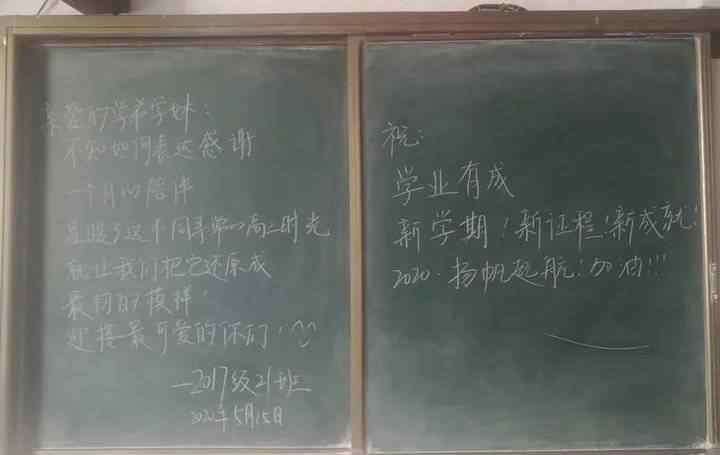 亲爱的学弟学妹：
不知如何表达感谢
一个月的陪伴
是照亮这个同寻常的高三时光
就让我们把它还原成
最初的模样
迎接最可爱的你们！
—2017级21班
2020年5月15日
祝：
学业有成
新学期！新证程！新成就！
2020·扬帆起航！加油!!!